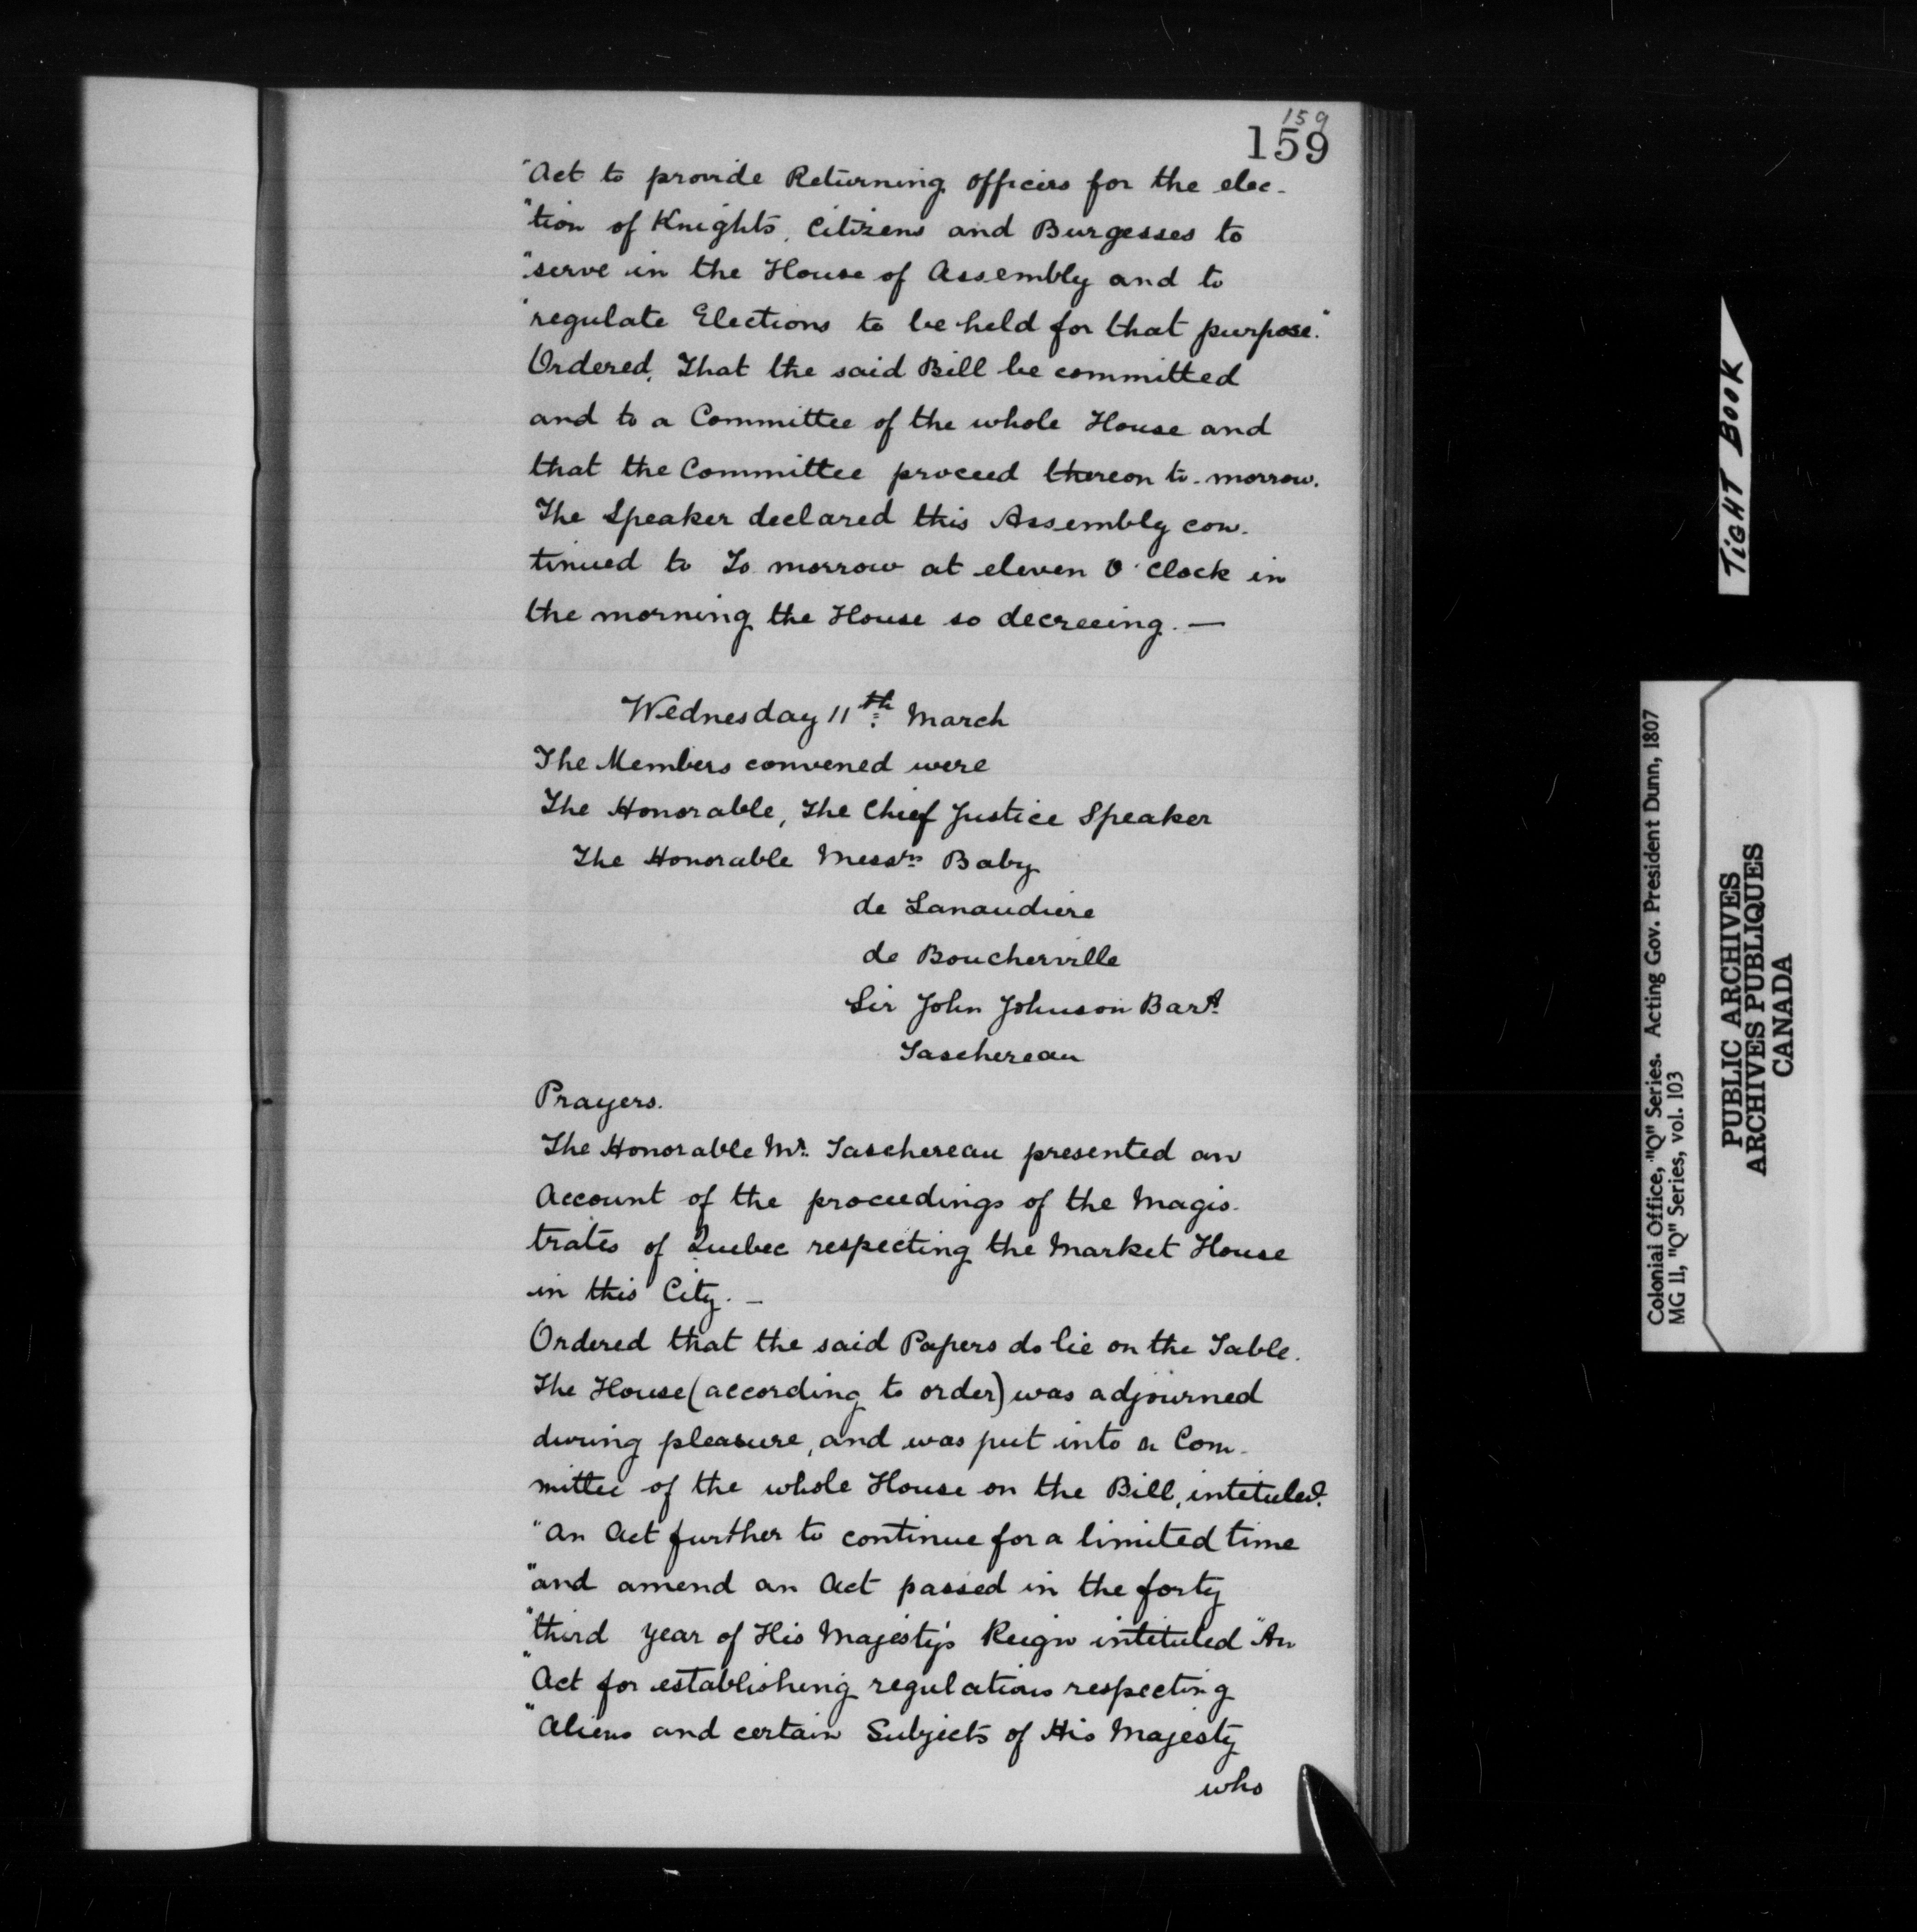 159
159
"Act to provide Returning Officers for the elec-
"tion of Knights, Citizens and Burgesses to
"serve in the House of Assembly and to
"regulate Elections to be held for that purpose."
Ordered, That the said Bill be committed
and to a Committee of the whole House and
that the Committee proceed thereon to-morrow.
The Speaker declared this Assembly con-
tinued to To morrow at eleven O'Clock in
the morning the House so decreeing. —
Wednesday 11th March
The Members convened were
The Honorable, The Chief Justice Speaker
The Honorable Messrs Baby
de Lanaudiere
de Boucherville
Sir John Johnson Bart.
Taschereau
Prayers.
The Honorable Mr. Taschereau presented an
Account of the proceedings of the Magis-
trates of Quebec respecting the Market House
in this City. —
Ordered that the said Papers do lie on the Table.
The House (according to order) was adjourned
during pleasure, and was put into a Com-
mittee of the whole House on the Bill, intituled.
"An Act further to continue for a limited time
"and amend an Act passed in the forty
"third year of His Majesty's Reign intituled "An
"Act for establishing regulations respecting
"Aliens and certain Subjects of His Majesty
who
TIGHT BOOK
Colonial Office, "Q" Series. Acting Gov. President Dunn, 1807
MG 11, "Q" Series, vol. 103
PUBLIC ARCHIVES
ARCHIVES PUBLIQUES
CANADA